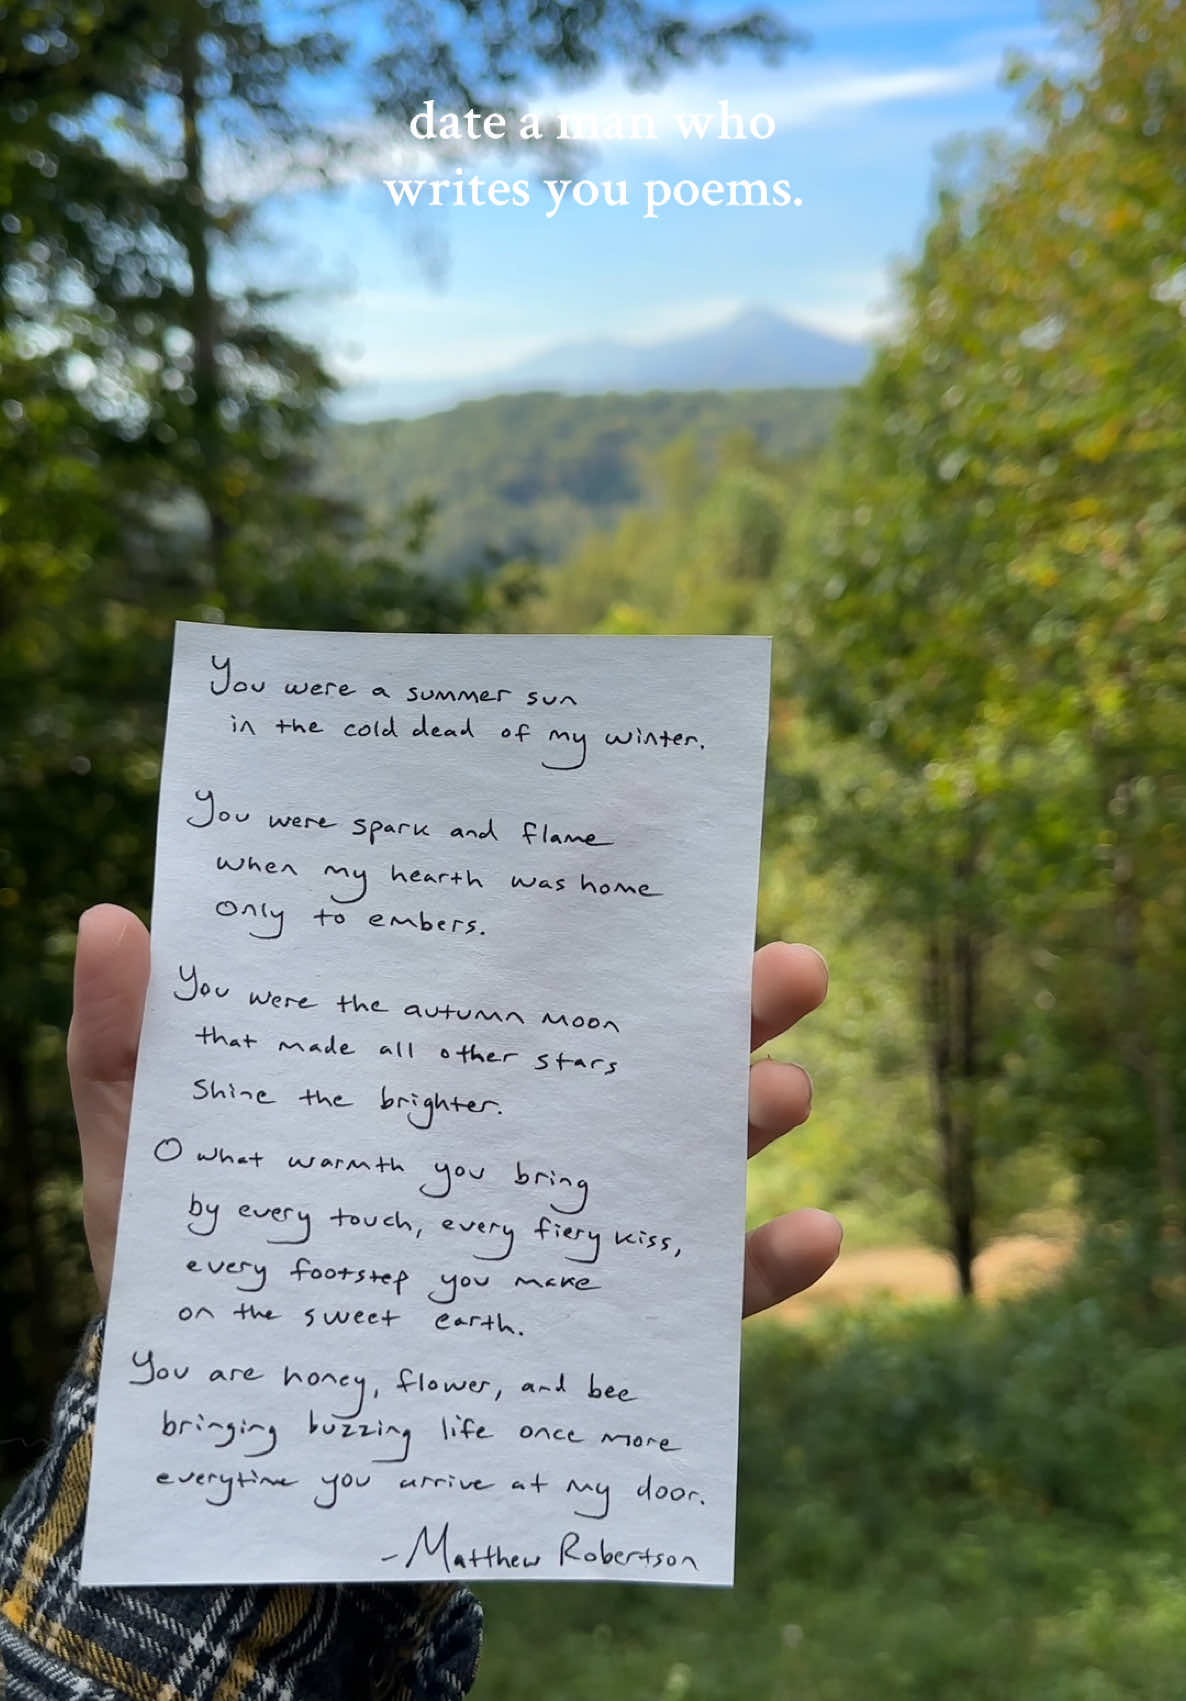 date a man who
writes you poems.
You were a summer sun
in the cold dead of my winter.
You were spark and flame
when my hearth was home
only to embers.
You were the autumn moon
that made all other stars
shine the brighter.
O what warmth you bring
by every touch, every fiery kiss,
every footstep you make
on the sweet earth.
You are honey, flower, and bee
bringing buzzing life once more
everytime you arrive at my door.
-Matthew Robertson